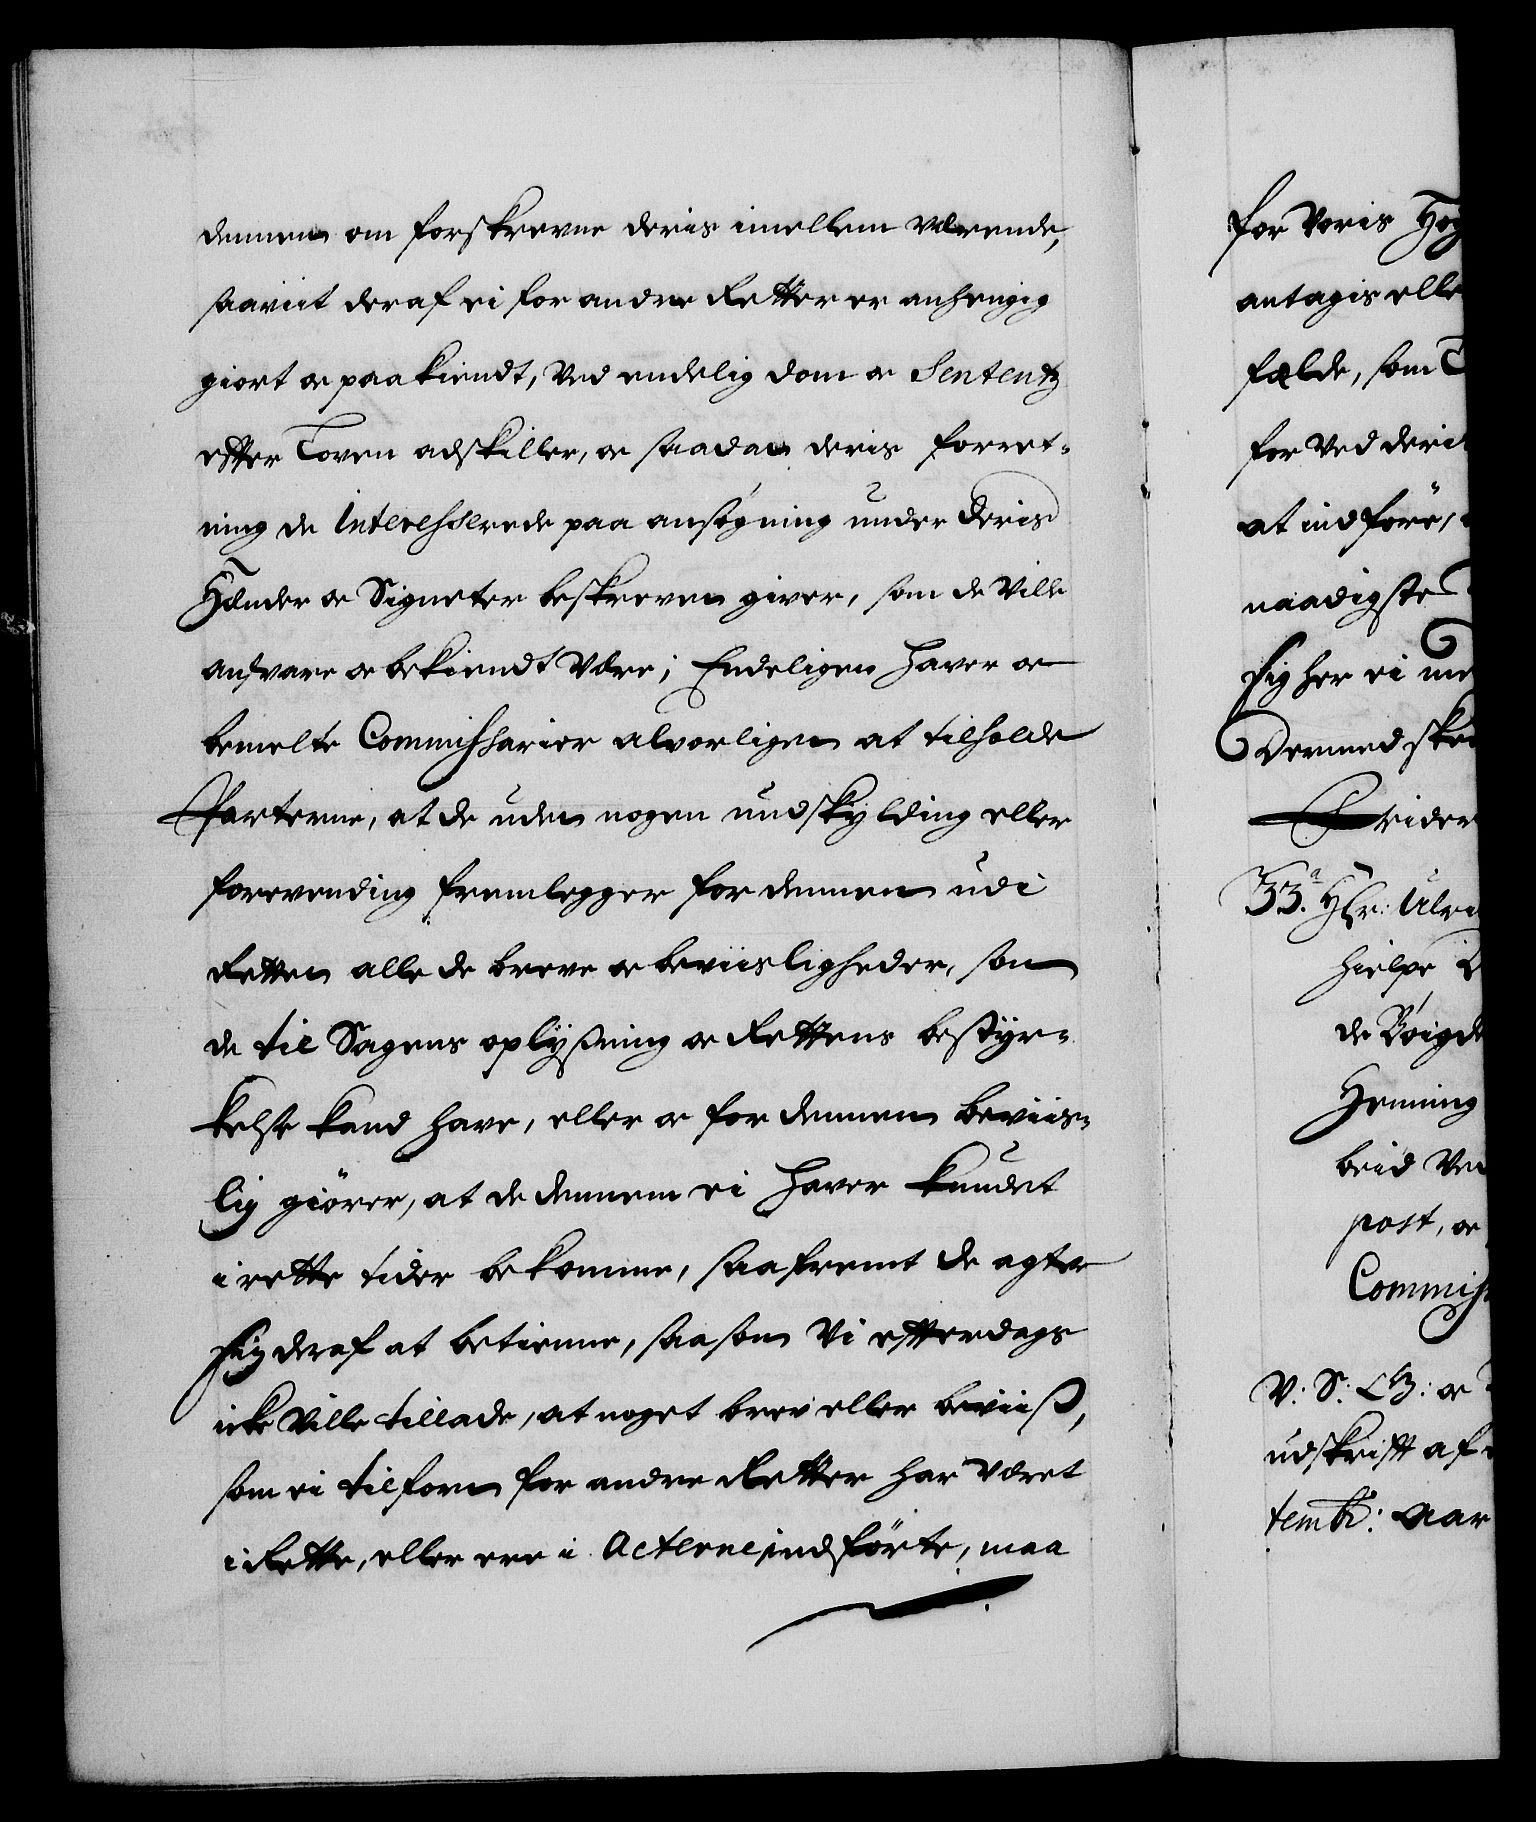 dennem om forskrevne deris imellem værende,
saaviit deraf ei for andre Retter er anhengig
giort oc paakiendt, Ved endelig dom oc Sententz
efter Loven adskiller, oc saadan deris forret-
ning de Interesserede paa ansøgning under deris
Hænder oc Signeter beskreven giver, som de Ville
ansvare oc bekiendt Være; Endeligen haver oc
bemelte Commissarier alvorligen at tilholde
Parterne, at de uden nogen undskylding eller
forevending fremlegger for dennem udi
Retten alle de breve oc beviisligheder, som
de til Sagens oplysning oc Rettens bestyr-
kelse kand have, eller oc for dennem beviis-
lig giører, at de dennem ei haver kundet
i rette tider bekomme, saafremt de agter
sig deraf at betienne, saasom Vi efterdags
icke Ville tillade, at noget brev eller beviiß,
som ei tilforn for andre Retter har Været
i Rette, eller ere i Acterne indførte, maa
for Voris Høy
antagis elle
fælde, som
for Ved deri
at indføre,
naadigste
sig her ei
Dermed ske
Frider
33. Hr: Ulri
hielpe
de Bøigde
Henning
beid Ved
post, oc
Commiss
V: S: G: oc
udskrift af
temb: Aar